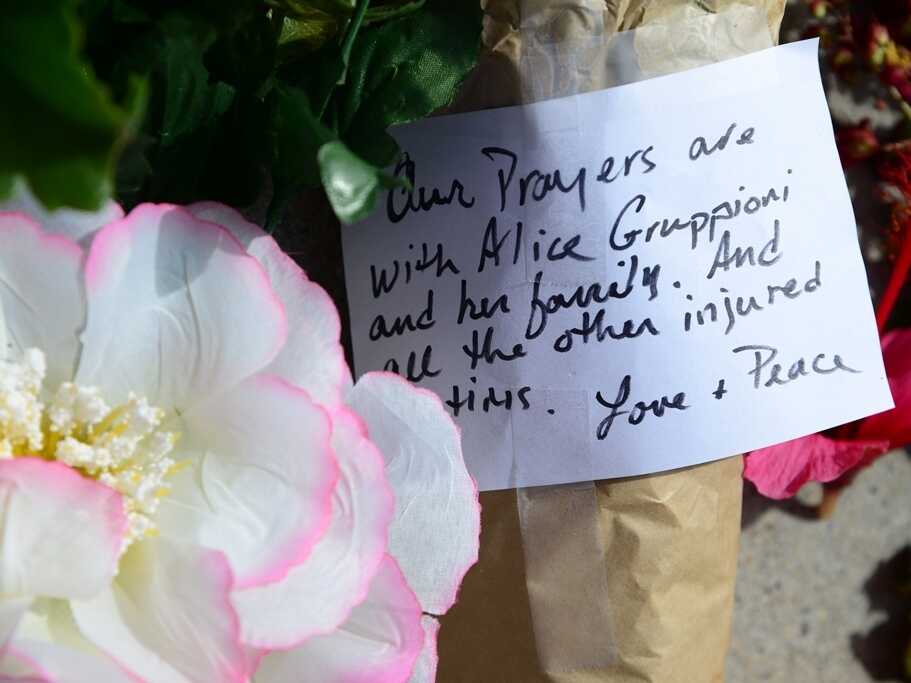 Our Prayers are
with Alice Gruppioni
and her family. And
all the other injured
tims. Love + Peace